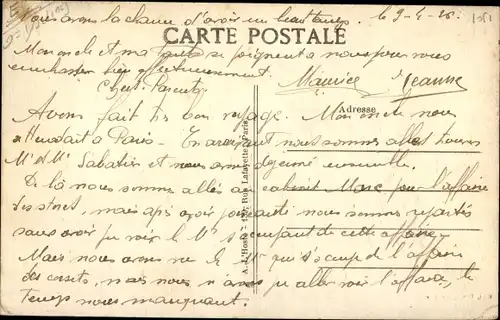 Nous avons la chance d'avoir un beau temps. le 9-4-26.
CARTE POSTALE
Mon oncle et ma tante se joignent à nous pour vous
embrasser bien affectueusement. Maurice Jeanne
Chers Parents, Adresse
Avons fait très bon voyage. Mon oncle nous
attendait à Paris. En arrivant nous sommes allés trouver
Mr et Mme Sabatier et nous avons déjeuné ensemble.
De là nous sommes allés au cabinet Marc pour l'affaire
des stores, mais après avoir nous sommes repartis
sans avoir pu voir le Mr s'occupant de cette affaire.
Mais nous avons vu le Mr qui s'occupe de l'affaire
des corsets, mais nous n'avons pu aller voir l'affaire, le
temps nous manquant.
A. L'Hoste - Rue Lafayette, Paris